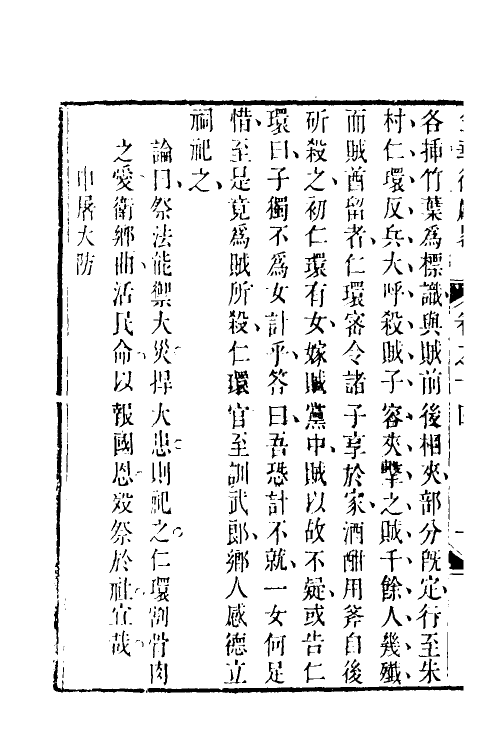 各揷竹葉爲標識與賊前後相夾部分旣定行至朱
村仁環反兵大呼殺賊子容夾擊之賊千餘人幾殱
而賊酋留者仁環審令諸子享於家酒酣用斧自後
斫殺之初仁環有女嫁賊黨中賊以故不疑或告仁
環曰子獨不爲女計乎答曰吾恐計不就一女何足
惜至是竟爲賊所殺仁環官至訓武郎鄉人感德立
祠祀之
論曰祭法能禦大災捍大患則祀之仁環割骨肉
之愛衛鄉曲活民命以報國恩歿祭於社宜哉
申屠大防